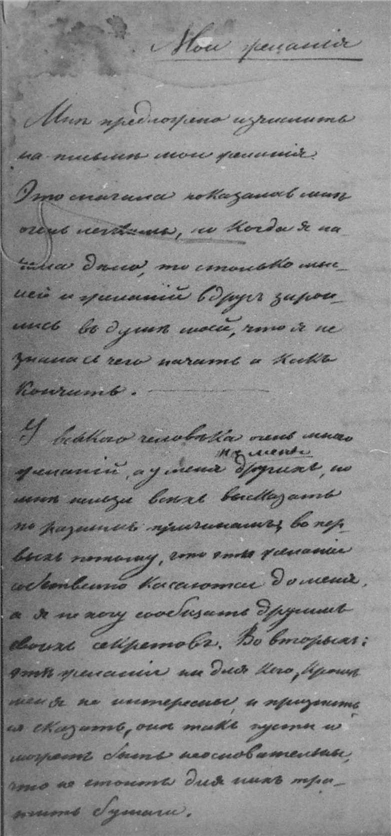 Мои желанія
Мнѣ предложено изчислить
на письмѣ мои желанія.
Это сначала показалось мнѣ
очень легкимъ, но когда я на
чала дѣло, то столько мы-
слей и желаній вдругъ зарои-
лись въ душѣ моей, что я не
знала съ чего начать и какъ
кончить.
У всякаго человѣка очень много
желаній, а у меня
другихъ, но
мнѣ нельзя всѣхъ высказать
по разнымъ причинамъ; во пер
выхъ потому, что эти желаніи
собственно касаются до меня,
а я не могу сообщать другимъ
своихъ секретовъ. Во вторыхъ:
эти желаніи ни для кого, кромѣ
меня не интересны, и признать
ся сказать, они такъ пусты и
можетъ быть неосновательны,
что не стоитъ для нихъ тра-
тить бумаги.